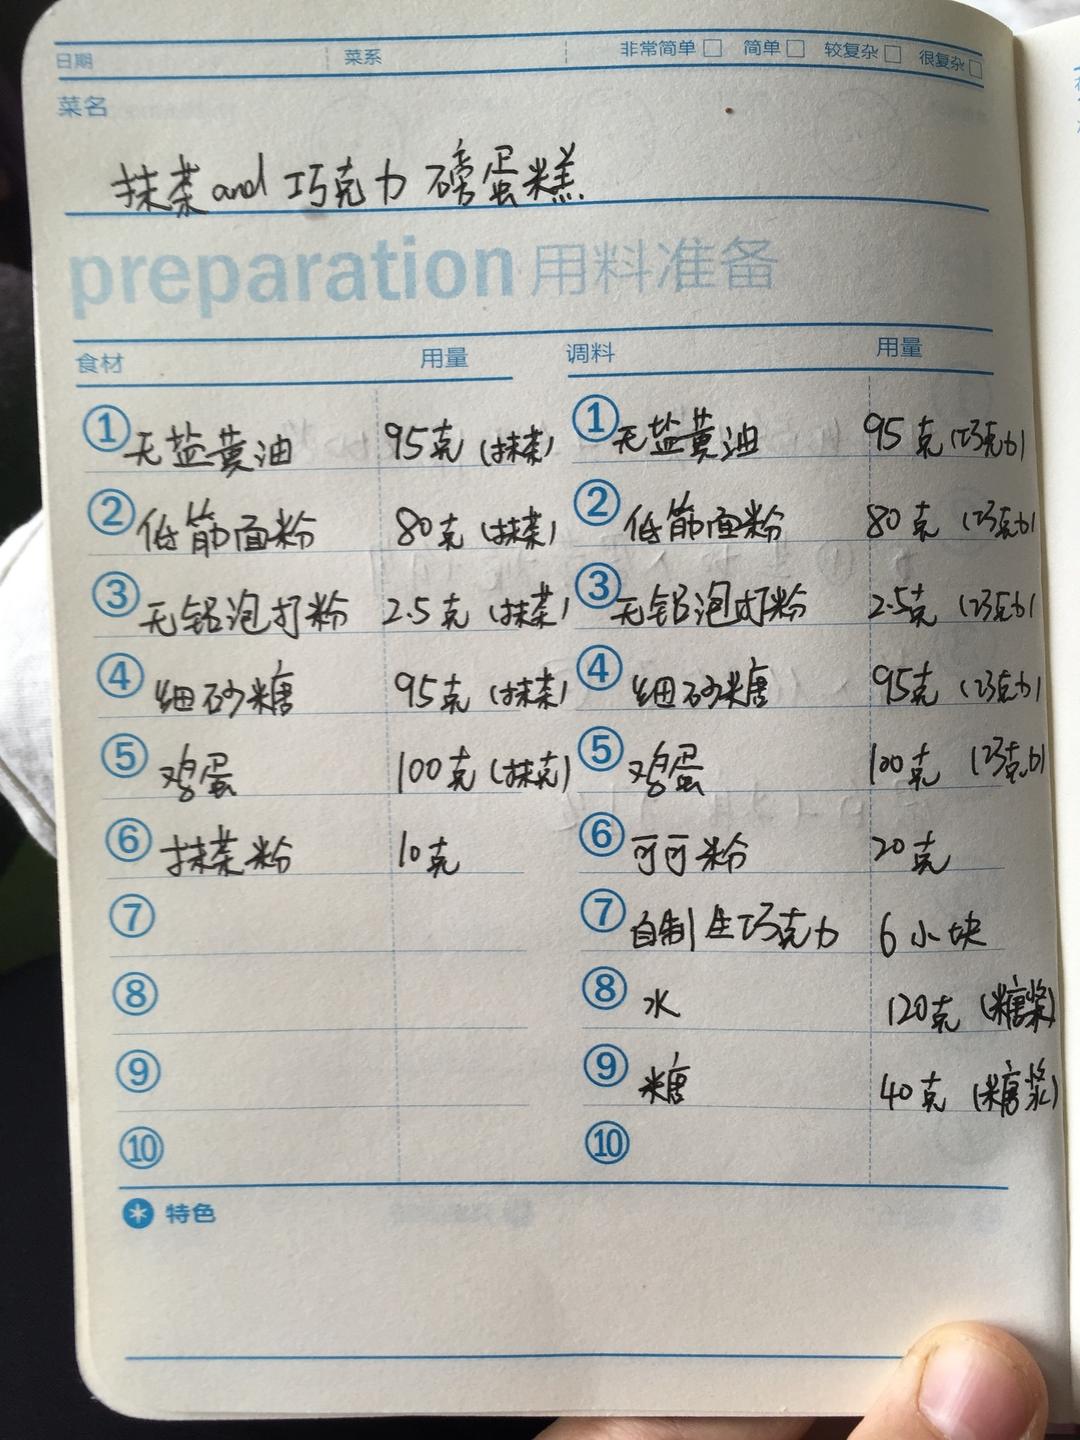 日期 菜系 非常简单 □ 简单 □ 较复杂 □ 很复杂 □
菜名
抹茶and巧克力磅蛋糕
preparation 用料准备
食材 用量 调料 用量
① 无盐黄油 95克(抹茶) ① 无盐黄油 95克(巧克力)
② 低筋面粉 80克(抹茶) ② 低筋面粉 80克(巧克力)
③ 无铝泡打粉 2.5克(抹茶) ③ 无铝泡打粉 2.5克(巧克力)
④ 细砂糖 95克(抹茶) ④ 细砂糖 95克(巧克力)
⑤ 鸡蛋 100克(抹克) ⑤ 鸡蛋 100克(巧克力)
⑥ 抹茶粉 10克 ⑥ 可可粉 20克
⑦ ⑦ 自制生巧克力 6小块
⑧ ⑧ 水 120克(糖浆)
⑨ ⑨ 糖 40克(糖浆)
⑩ ⑩
特色